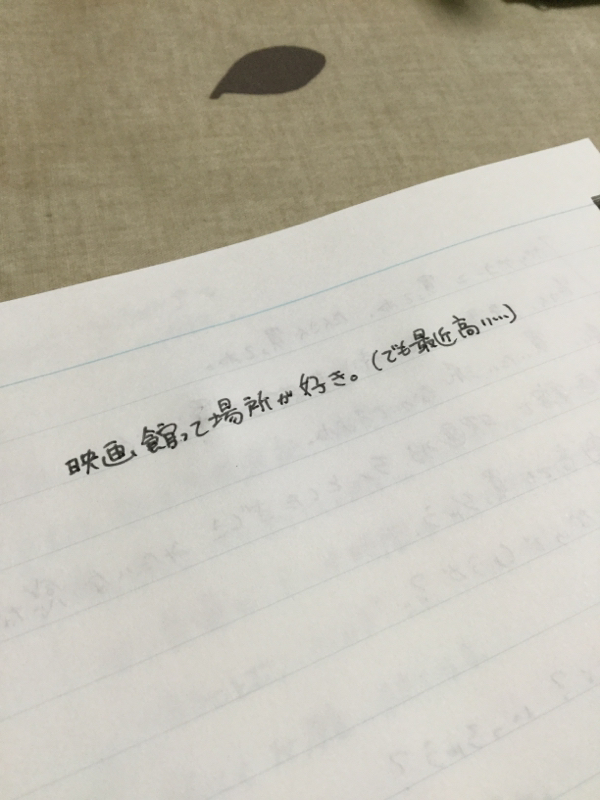 映画館って場所が好き。(でも最近高い…)